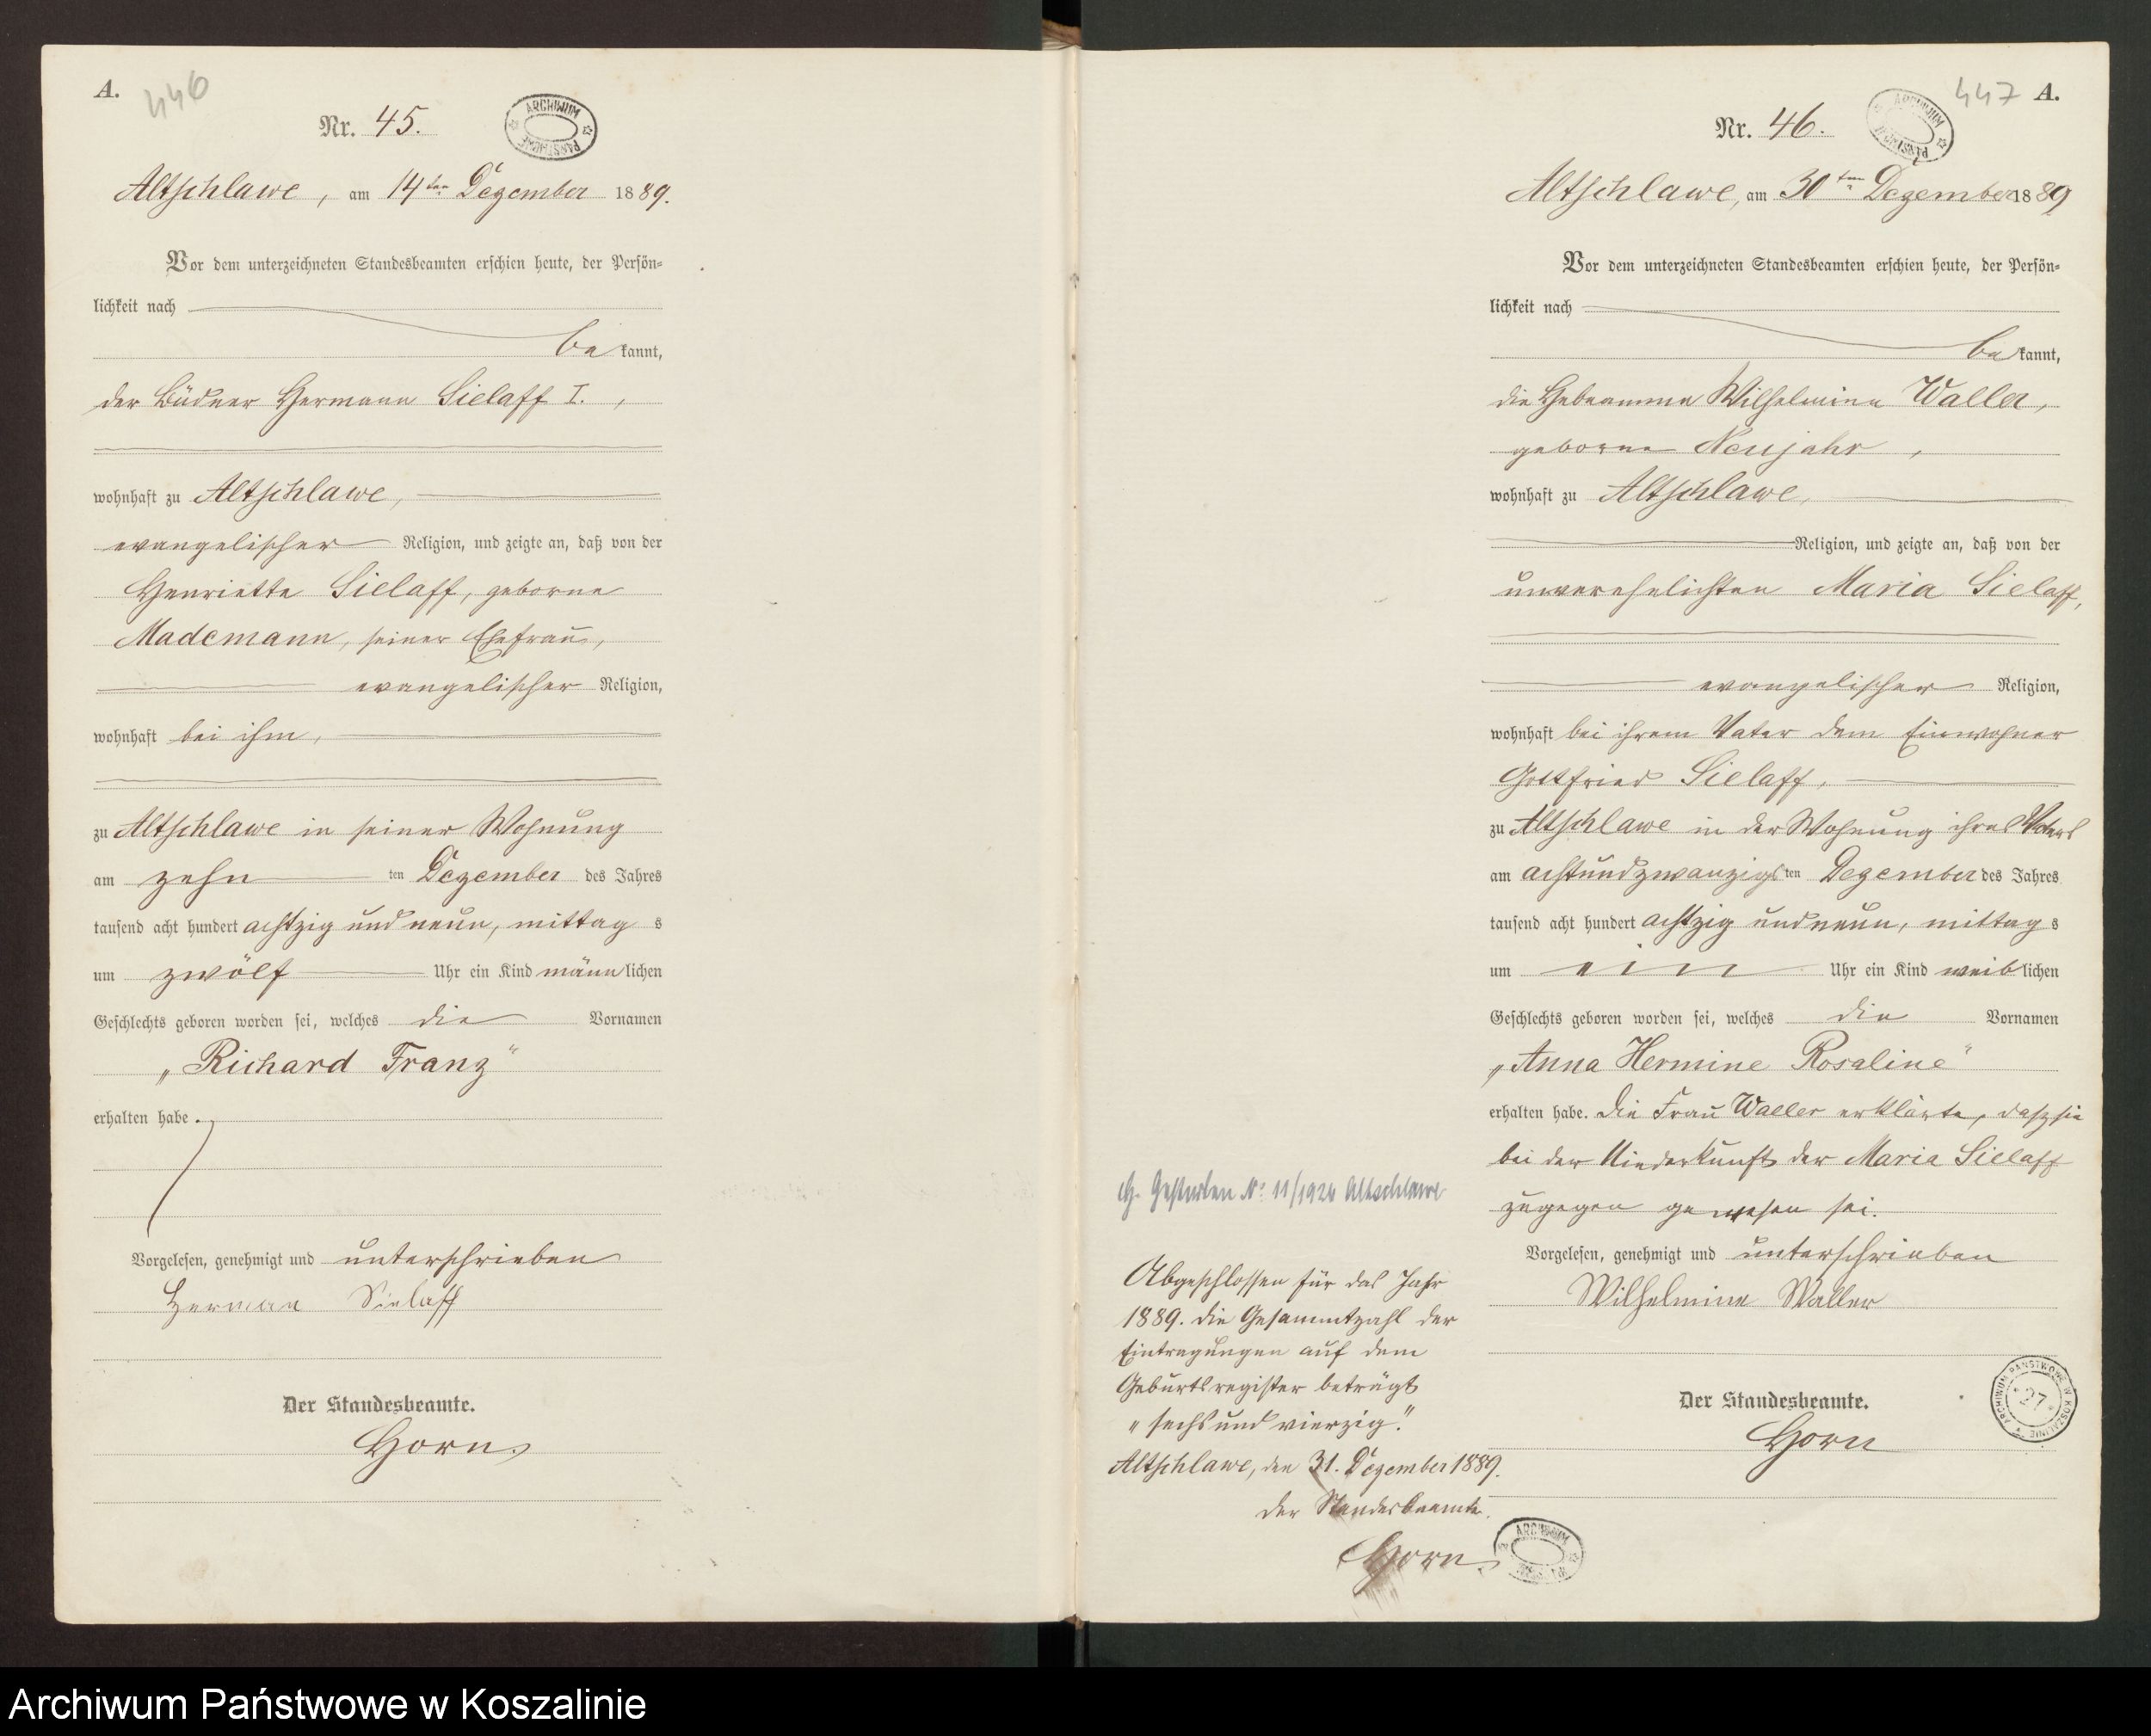 A.
446
Nr. 45.
ARCHIWUM PAŃSTWOWE
Altschlawe, am 14ten Dezember 1889.
Vor dem unterzeichneten Standesbeamten erschien heute, der Persön-
lichkeit nach
bekannt,
der Büdner Hermann Sielaff I.,
wohnhaft zu Altschlawe,
evangelischer Religion, und zeigte an, daß von der
Henriette Sielaff, geborne
Mademann, seiner Ehefrau,
evangelischer Religion,
wohnhaft bei ihm,
zu Altschlawe in seiner Wohnung
am zehn ten Dezember des Jahres
tausend acht hundert achtzig und neun, mittag s
um zwölf Uhr ein Kind männlichen
Geschlechts geboren worden sei, welches die Vornamen
„Richard Franz“
erhalten habe.
Vorgelesen, genehmigt und unterschrieben
Herman Sielaff
Der Standesbeamte.
Horn.
447
A.
Nr. 46.
ARCHIWUM PAŃSTWOWE
Altschlawe, am 30ten Dezember 1889
Vor dem unterzeichneten Standesbeamten erschien heute, der Persön-
lichkeit nach
bekannt,
die Hebeamme Wilhelmine Waller,
geborne Neujahr,
wohnhaft zu Altschlawe,
Religion, und zeigte an, daß von der
unverehelichten Maria Sielaff,
evangelischer Religion,
wohnhaft bei ihrem Vater dem Einwohner
Gottfried Sielaff,
zu Altschlawe in der Wohnung ihres Vaters
am achtundzwanzigsten Dezember des Jahres
tausend acht hundert achtzig und neun, mittag s
um ein Uhr ein Kind weiblichen
Geschlechts geboren worden sei, welches die Vornamen
„Anna Hermine Rosaline“
erhalten habe. Die Frau Waller erklärte, daß sie
bei der Niederkunft der Maria Sielaff
zugegen gewesen sei.
Vorgelesen, genehmigt und unterschrieben
Wilhelmine Waller
Der Standesbeamte.
Horn
ARCHIWUM PAŃSTWOWE W KOSZALINIE
27
Gestorben No 11/1924 Altschlawe
Abgeschlossen für das Jahr
1889. Die Gesammtzahl der
Eintragungen auf dem
Geburtsregister beträgt
„sechs und vierzig.“
Altschlawe, den 31. Dezember 1889.
Der Standesbeamte.
Horn.
ARCHIWUM
Archiwum Państwowe w Koszalinie